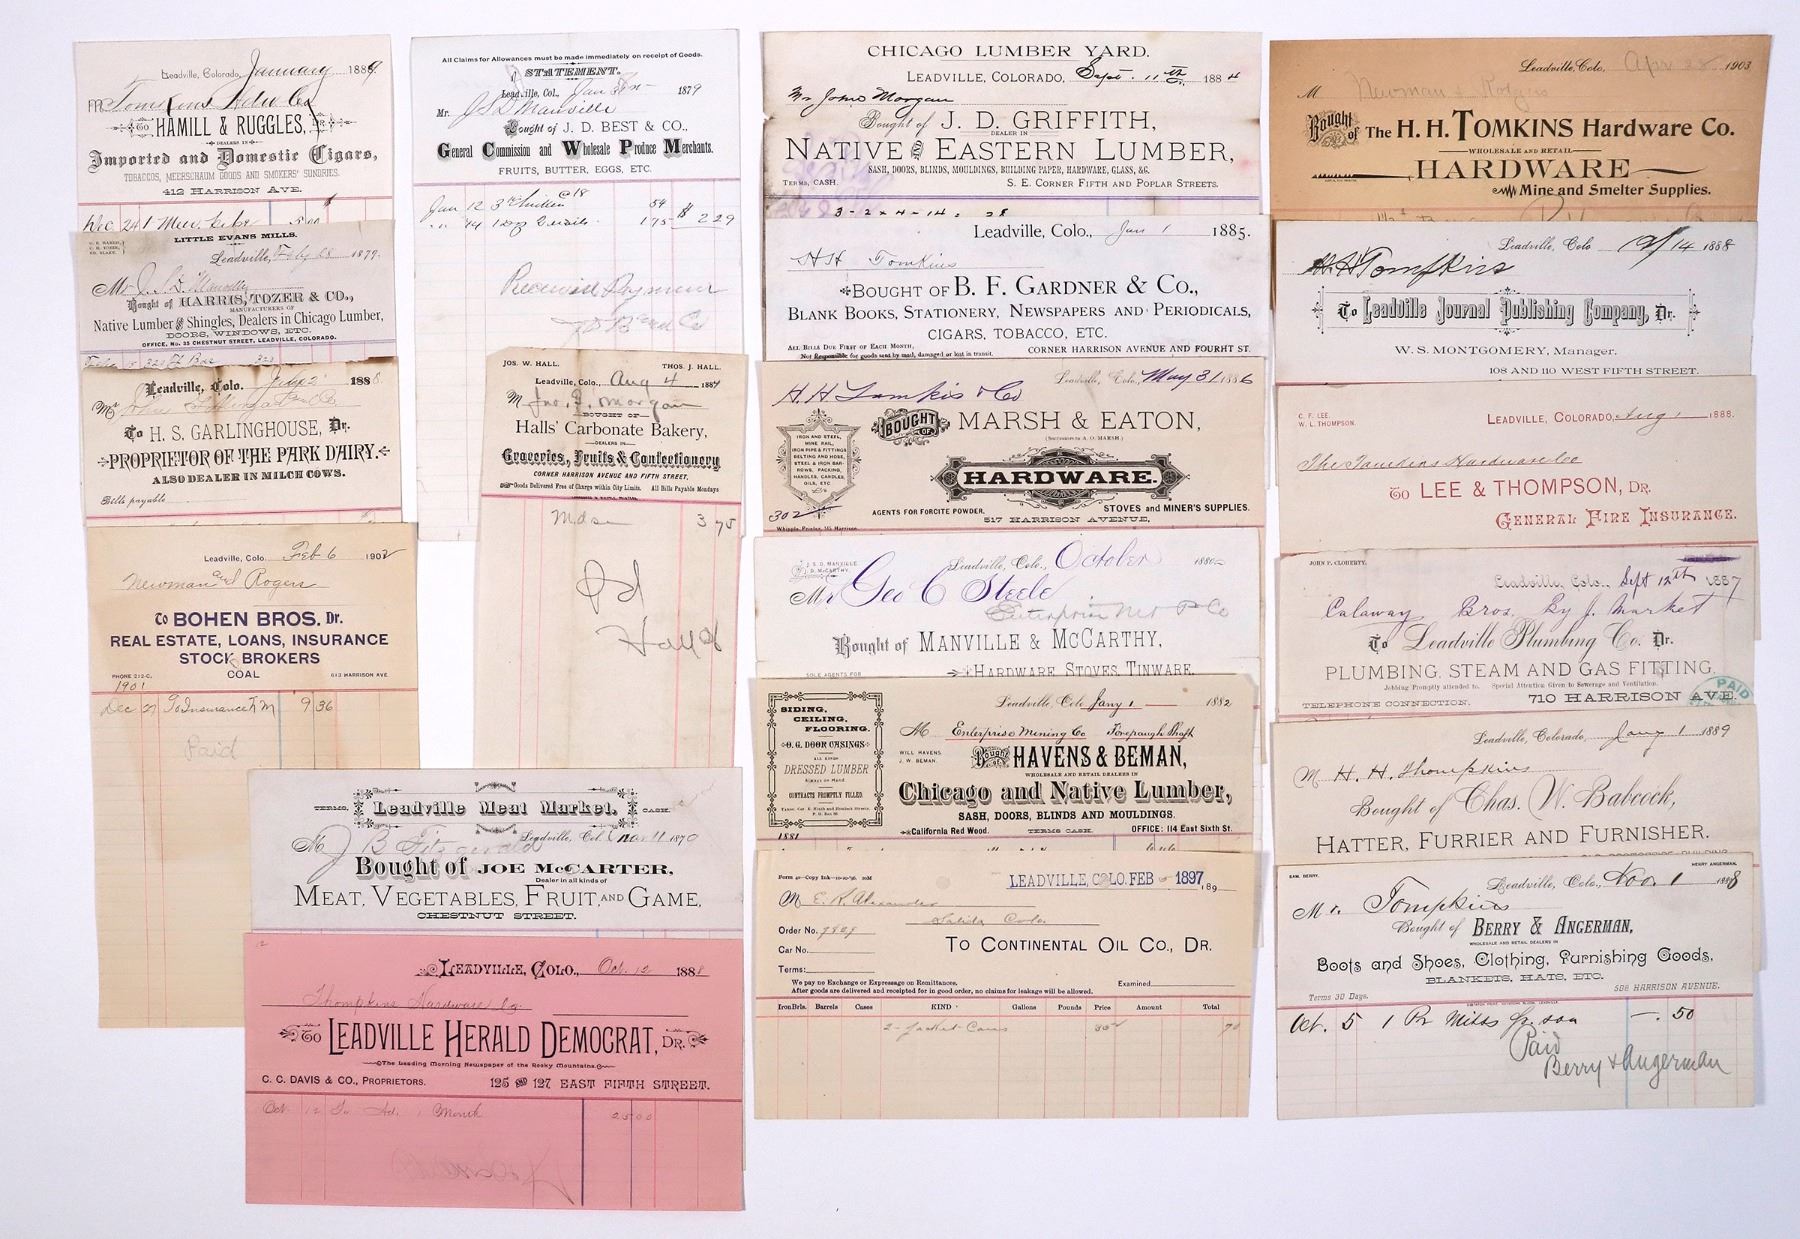 Leadville, Colorado, January 1889
Tomkins Hdw Co
To HAMILL & RUGGLES, Dr.
DEALERS IN
Imported and Domestic Cigars,
TOBACCOS, MEERSCHAUM GOODS AND SMOKERS' SUNDRIES.
412 HARRISON AVE.
Dec 24 1
LITTLE EVANS MILLS.
Leadville, Feby 28 1879.
Mr J. S. D. Manville
Bought of HARRIS, TOZER & CO.,
MANUFACTURERS OF
Native Lumber and Shingles, Dealers in Chicago Lumber,
DOORS, WINDOWS, ETC.
OFFICE, No. 35 CHESTNUT STREET, LEADVILLE, COLORADO.
Leadville, Colo. July 2 1888.
Mr John
To H. S. GARLINGHOUSE, Dr.
PROPRIETOR OF THE PARK DAIRY.
ALSO DEALER IN MILCH COWS.
Bills payable
Leadville, Colo. Feb 6 1902
Newman and Rogers
To BOHEN BROS. Dr.
REAL ESTATE, LOANS, INSURANCE
STOCK BROKERS
COAL
PHONE 212-C. 613 HARRISON AVE
1901
Dec 27 To Insurance 9 36
Paid
TERMS, Leadville Meat Market. CASH.
Leadville, Col. Nov 11 1879
M J B Fitzgerald
Bought of JOE McCARTER,
Dealer in all kinds of
MEAT, VEGETABLES, FRUIT, AND GAME,
CHESTNUT STREET.
LEADVILLE, COLO., Oct. 12 1888
Thompkins Hardware Co
To LEADVILLE HERALD DEMOCRAT, DR.
The Leading Morning Newspaper of the Rocky Mountains.
C. C. DAVIS & CO., PROPRIETORS. 125 AND 127 EAST FIFTH STREET.
Oct. 12 To Ad. 1 Month 25 00
All Claims for Allowances must be made immediately on receipt of Goods.
STATEMENT.
Leadville, Col., Jan 1879
Mr. J S D Manville
Bought of J. D. BEST & CO.,
General Commission and Wholesale Produce Merchants.
FRUITS, BUTTER, EGGS, ETC.
Jan 12 3 Chicken @ 18 54
14 1 Dz Quails 1.75 $ 2 29
Received Payment
J D Best & Co
JOS. W. HALL. THOS. J. HALL.
Leadville, Colo., Aug 4 1884
M Jno. J. Morgan
BOUGHT OF
Halls' Carbonate Bakery,
DEALERS IN
Groceries, Fruits & Confectionery
CORNER HARRISON AVENUE AND FIFTH STREET,
Goods Delivered Free of Charge within City Limits. All Bills Payable Mondays
Mdse 3 75
Pd
Hall
CHICAGO LUMBER YARD.
LEADVILLE, COLORADO, Sept. 11th 1884
Mr John Morgan
Bought of J. D. GRIFFITH,
DEALER IN
NATIVE AND EASTERN LUMBER,
SASH, DOORS, BLINDS, MOULDINGS, BUILDING PAPER, HARDWARE, GLASS, &G.
TERMS, CASH. S. E. CORNER FIFTH AND POPLAR STREETS.
3 - 2 x 4 - 14 = 28
Leadville, Colo., Jan 1 1885.
H H Tomkins
BOUGHT OF B. F. GARDNER & CO.,
BLANK BOOKS, STATIONERY, NEWSPAPERS AND PERIODICALS,
CIGARS, TOBACCO, ETC.
ALL BILLS DUE FIRST OF EACH MONTH.
Not Responsible for goods sent by mail, damaged or lost in transit. CORNER HARRISON AVENUE AND FOURHT ST.
Leadville, Colo., May 31 1886
H. H. Tomkis & Co
BOUGHT OF MARSH & EATON,
(Successors to A. O. MARSH.)
IRON AND STEEL,
MINE RAIL,
IRON PIPE & FITTINGS
BELTING AND HOSE,
STEEL & IRON BARROWS, PACKING,
HANDLES, CANDLES,
OILS, ETC.
HARDWARE.
302
AGENTS FOR FORCITE POWDER. STOVES and MINER'S SUPPLIES.
517 HARRISON AVENUE,
J. S. D. MANVILLE.
D. McCARTHY.
Leadville, Colo., October 1880
Mr Geo C Steele
Bought of MANVILLE & McCARTHY,
SOLE AGENTS FOR HARDWARE, STOVES, TINWARE.
Leadville, Colo Jany 1 1882
M Enterprise Mining Co Forepaugh Shaft
SIDING,
CEILING,
FLOORING.
O. G. DOOR CASINGS
ALL KINDS
DRESSED LUMBER
Always on Hand.
CONTRACTS PROMPTLY FILLED.
WILL HAVENS.
J. W. BEMAN.
Bought of HAVENS & BEMAN,
WHOLESALE AND RETAIL DEALERS IN
Chicago and Native Lumber,
SASH, DOORS, BLINDS AND MOULDINGS.
California Red Wood. TERMS CASH. OFFICE: 114 East Sixth St.
1881
LEADVILLE, COLO. FEB 1897 189
M E. R. Alexander
Salida Colo.
Order No.
Car No.
TO CONTINENTAL OIL CO., DR.
Terms:
We pay no Exchange or Expressage on Remittances.
After goods are delivered and receipted for in good order, no claims for leakage will be allowed. Examined
Iron Brls. Barrels Cases KIND Gallons Pounds Price Amount Total
2 - Jacket Cans 70
Leadville, Colo., Apr 28 1903
M Newman & Rodgers
Bought of The H. H. TOMKINS Hardware Co.
WHOLESALE AND RETAIL
HARDWARE
Mine and Smelter Supplies.
Leadville, Colo 14 1888
H H Tomfkins
To Leadville Journal Publishing Company, Dr.
W. S. MONTGOMERY, Manager.
108 AND 110 WEST FIFTH STREET.
C. F. LEE.
W. L. THOMPSON.
LEADVILLE, COLORADO, Aug 1 1888.
The Tomkins Hardware Co
To LEE & THOMPSON, DR.
GENERAL FIRE INSURANCE.
JOHN P. CLOHERTY.
Leadville, Colo., Sept 12th 1887
Calaway Bros. By J. Market
To Leadville Plumbing Co. Dr.
PLUMBING, STEAM AND GAS FITTING,
Jobbing Promptly attended to. Special Attention Given to Sewerage and Ventilation.
TELEPHONE CONNECTION. 710 HARRISON AVE.
PAID
Leadville, Colorado, Jany 1 1889
M H. H. Thompkins
Bought of Chas. W. Babcock,
HATTER, FURRIER AND FURNISHER.
SAM. BERRY. HENRY ANGERMAN.
Leadville, Colo., Nov. 1 1888
Mr. Tompkins
Bought of BERRY & ANGERMAN,
WHOLESALE AND RETAIL DEALERS IN
Boots and Shoes, Clothing, Furnishing Goods,
BLANKETS, HATS, ETC.
Terms 30 Days. 508 HARRISON AVENUE.
Oct. 5 1 Pr Mitts for son .50
Paid
Berry & Angerman